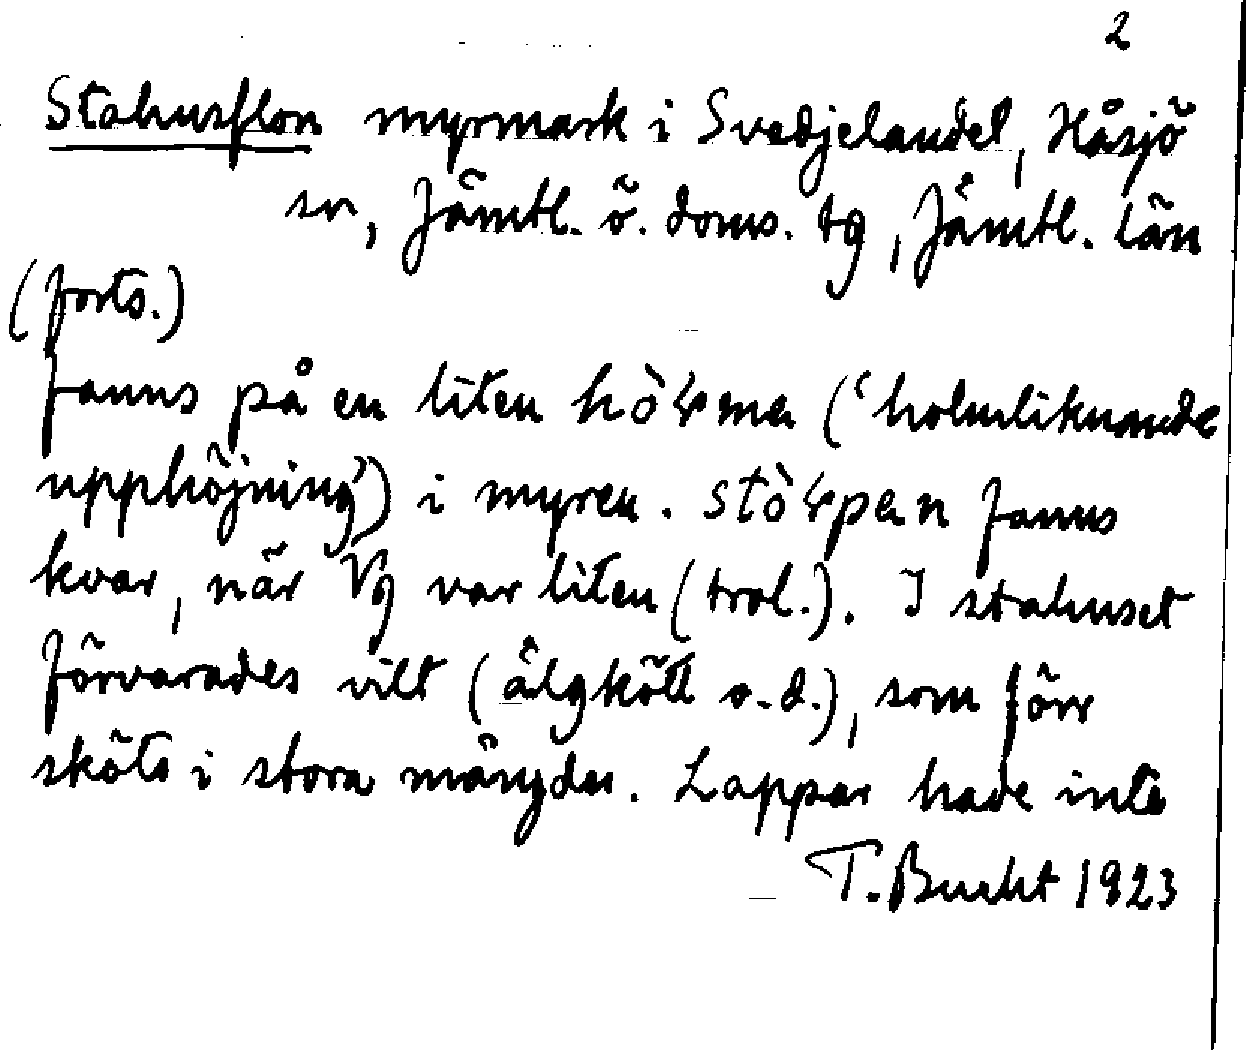 2
Stahusflon myrmark i Svedjelandet, Håsjö
sn, Jämtl. ö. doms. tg, Jämtl. län
(forts.)
fanns på en liten (‘holmliknande
upphöjning’) i myren. fanns
kvar, när Vg var liten (trol.). I stahuset
förvarades vilt (älgkött o.d.), som förr
sköts i stora mängder. Lappar hade inte
T. Bucht 1923